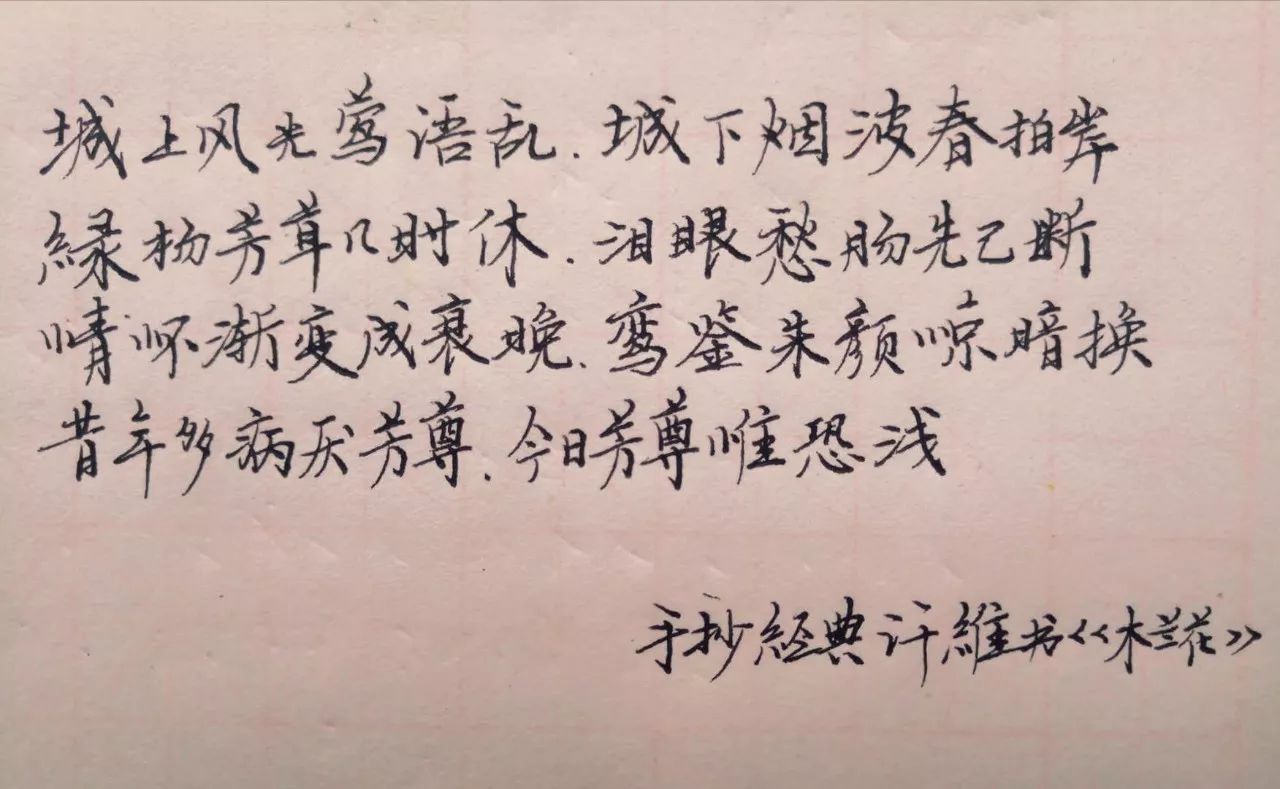 城上风光莺语乱.城下烟波春拍岸
緑杨芳草几时休.泪眼愁肠先已断
情怀渐变成衰晚.鸾鉴朱颜惊暗换
昔年多病厌芳尊.今日芳尊惟恐浅
手抄經典 许維书《木兰花》